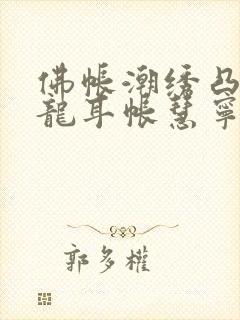 佛帳潮绣凸
龍耳帳慧寧
郭多權